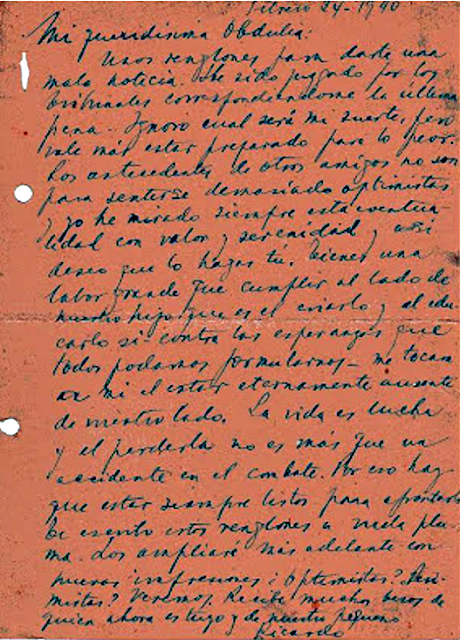 Febrero 24-1940
Mi queridísima Obdulia:
Unos renglones para darte una
mala noticia. He sido juzgado por los
tribunales correspondiéndome la última
pena. Ignoro cual será mi suerte, pero
vale más estar preparado para lo peor.
Los antecedentes de otros amigos no son
para sentirse demasiado optimistas
y yo he mirado siempre esta eventua
lidad con valor y serenidad y así
deseo que lo hagas tú. Tienes una
labor grande que cumplir al lado de
nuestro hijo que es el criarlo y al edu
carlo si contra las esperanzas que
todos podamos formularnos - me tocara
a mi el estar eternamente ausente
de vuestro lado. La vida es lucha
y el perderla no es más que un
accidente en el combate. Por eso hay
que estar siempre listos para afrontarlo
Te escribo estos renglones a vuela plu
ma. Los ampliaré más adelante con
nuevas impresiones ¿Optimistas? ¿Pesi
mistas? Veremos. Recibe muchos besos de
quien ahora es tuyo y de nuestro pequeño
Ricardo